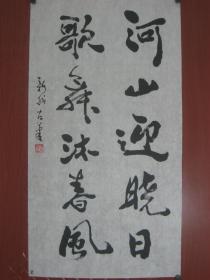 河山迎晓日
歌舞沐春风